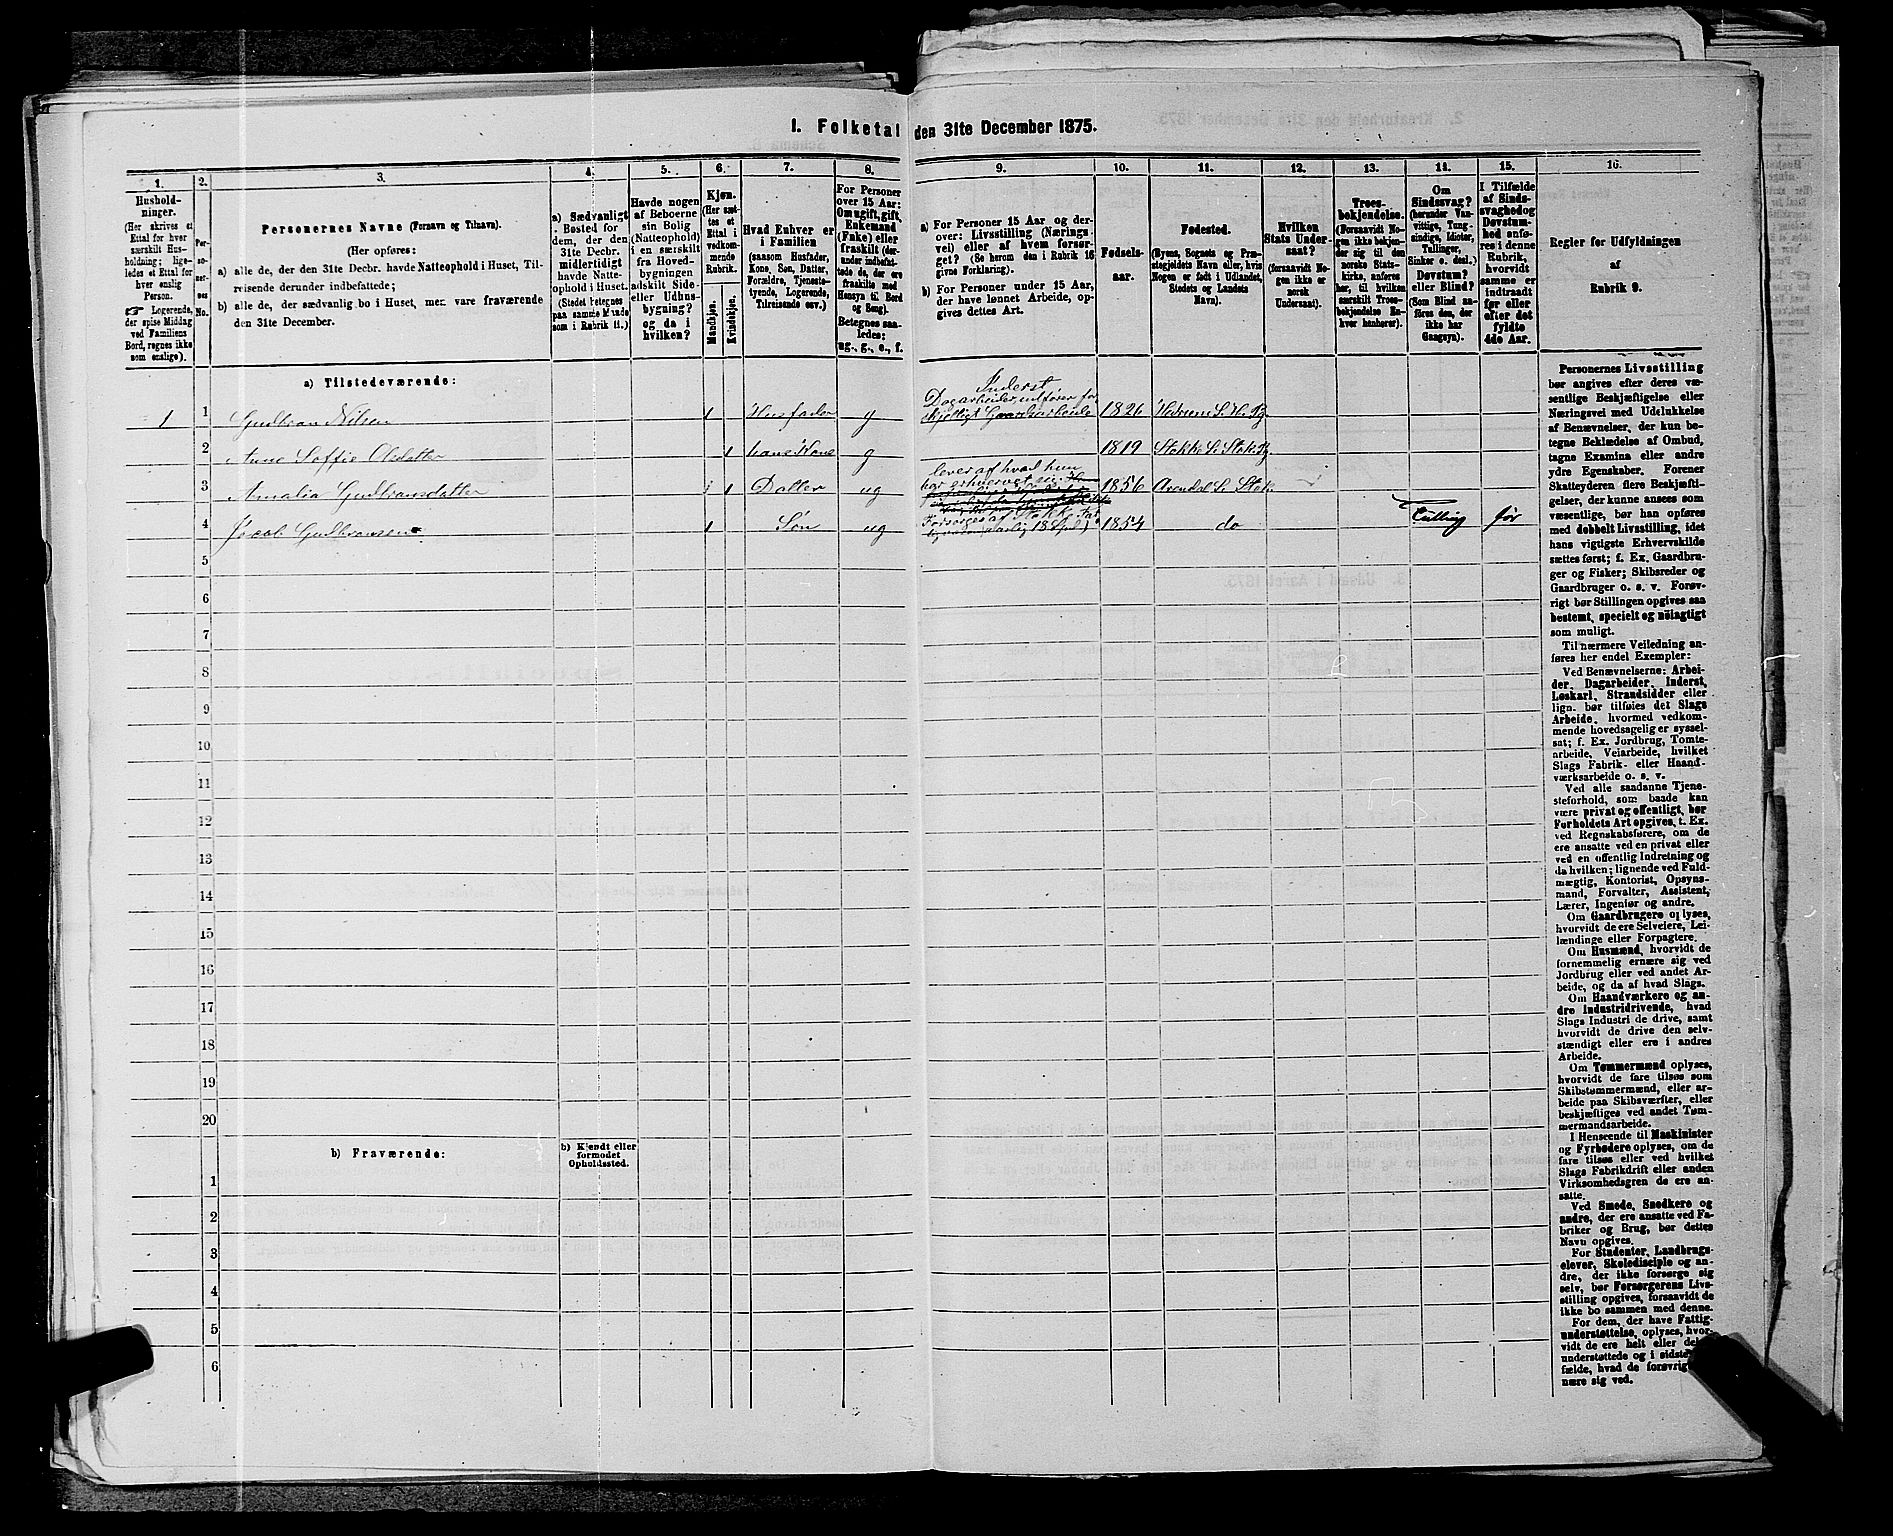 I. Folketal den 31te December 1875.
1.
2.
3.
4.
5.
6.
7.
8.
9.
10.
11.
12.
13.
14.
15.
16.
Hushold-
ninger.
(Her skrives et
Ettal for hver
særskilt Hus-
holdning; lige-
ledes et Ettal for
hver enslig
Person.
☞ Logerende,
der spise Middag
ved Familiens
Bord, regnes ikke
som enslige).
Per-
soner-
nes
No.
Personernes Navne (Fornavn og Tilnavn).
(Her opføres:
a) alle de, der den 31te Decbr. havde Natteophold i Huset, Til-
reisende derunder indbefattede;
b) alle de, der sædvanlig bo i Huset, men vare fraværende
den 31te December.
a) Sædvanligt
Bosted for
dem, der den
31te Decbr.
midlertidigt
havde Natte-
ophold i Huset.
(Stedet betegnes
paa samme Maade
som i Rubrik 11.)
Havde nogen
af Beboerne
sin Bolig
(Natteophold)
i en særskilt
fra Hoved-
bygningen
adskilt Side-
eller Udhus-
bygning?
og da i
hvilken?
Kjøn.
(Her sæt-
tes et
Ettal i
vedkom-
mende
Rubrik.
Mandkjøn.
Kvindekjøn.
Hvad Enhver er
i Familien
(saasom Husfader,
Kone, Søn, Datter,
Forældre, Tjeneste-
tyende, Logerende,
Tilreisende osv.)
For Personer
over 15 Aar:
Om ugift, gift,
Enkemand
(Enke) eller
fraskilt (der-
under indbefat-
tede de, der ere
fraskilte med
Hensyn til Bord
og Seng).
Betegnes saa-
ledes:
ug., g., e., f.
a) For Personer 15 Aar og der-
over: Livsstilling (Nærings-
vei) eller af hvem forsør-
get? (Se herom den i Rubrik 16
givne Forklaring).
b) For Personer under 15 Aar,
der have lønnet Arbeide, op-
gives dettes Art.
Fødsels-
aar.
Fødested.
(Byens, Sognets og Præ-
stegjeldets Navn eller, hvis
Nogen er født i Udlandet,
Stedets og Landets
Navn).
Hvilken
Stats Under-
saat?
(forsaavidt No-
gen ikke er
norsk
Undersaat).
Troes-
bekjendelse.
(Forsaavidt No-
gen ikke bekjen-
der sig til den
norske Stats-
kirke, anføres
her, til hvilken
særskilt Troes-
bekjendelse En-
hver henhører).
Om
Sindssvag?
(herunder Van-
vittige, Tung-
sindige, Idioter,
Tullinger,
Sinker o. desl.)
Døvstum?
eller Blind?
(Som Blind an-
føres den, der
ikke har
Gangsyn).
I Tilfælde
af Sinds-
svaghed og
Døvstum-
hed anfø-
res i denne
Rubrik,
hvorvidt
samme er
indtraadt
før eller
efter det
fyldte
4de Aar.
Regler for Udfyldningen
af
Rubrik 9.
a) Tilstedeværende:
1 1 Gudbran Nilsen 1 Husfader g Inderst
Dagarbeider, udfører for-
skjelligt Gaardsarbeide 1826
2 Anne Soffie Olsdatter 1 hans Kone g 1819 Stokke S. Stok. Pg.
3 Amalia Gudbransdatter 1 Datter ug lever af hvad hun
har erhvervet sig 1856 Arendal S. Stok.
4 Jacob Gudbransen 1 Søn ug Forsørges af Stokke 1854 do Tulling før
5
6
7
8
9
10
11
12
13
14
15
16
17
18
19
20
b) Fraværende:
b) Kjendt eller
formodet
Opholdssted.
1
2
3
4
5
6
Personernes Livsstilling
bør angives efter deres væ-
sentlige Beskjæftigelse eller
Næringsvei med Udelukkelse
af Benævnelser, der kun be-
tegne Beklædelse af Ombud,
tagne Examina eller andre
ydre Egenskaber. Forener
Skatteyderen flere Beskjæfti-
gelser, der kunne ansees som
væsentlige, bør han opføres
med dobbelt Livsstilling, idet
hans vigtigste Erhvervskilde
sættes først; f. Ex. Gaardbru-
ger og Fisker; Skibsreder og
Gaardbruger o. s. v. Forøv-
rigt bør Stillingen opgives saa
bestemt, specielt og nöiagtigt
som muligt.
Til nærmere Veiledning an-
føres her endel Exempler:
Ved Benævnelserne: Arbei-
der, Dagarbeider, Inderst,
Løskarl, Strandsidder eller
lign. bør tilføies det Slags
Arbeide, hvormed vedkom-
mende hovedsagelig er syssel-
sat; f. Ex. Jordbrug, Tomte-
arbeide, Veiarbeide, hvilket
Slags Fabrik- eller Haand-
værksarbeide o. s. v.
Ved alle saadanne Tjene-
steforhold, som baade kan
være privat og offentligt, bør
Forholdets Art opgives, t. Ex.
ved Regnskabsførere, om de
ere ansatte ved en privat eller
ved en offentlig Indretning og
da hvilken; lignende ved Fuld-
mægtig, Kontorist, Opsyns-
mand, Forvalter, Assistent,
Lærer, Ingeniør og andre.
Om Gaardbrugere oplyses,
hvorvidt de ere Selveiere, Lei-
lændinge eller Forpagtere.
Om Husmænd, hvorvidt de
fornemmelig ernære sig ved
Jordbrug eller ved andet Ar-
beide, og da af hvad Slags.
Om Haandværkere og an-
dre Industridrivende, hvad
Slags Industri de drive, samt
hvorvidt de drive den selv-
stændigt eller ere i andres
Arbeide.
Om Tømmermænd oplyses,
hvorvidt de fare tilsøs som
Skibstømmermænd, eller ar-
beide paa Skibsværfter, eller
beskjæftiges ved andet Tøm-
mermandsarbeide.
I Henseende til Maskinister
og Fyrbødere oplyses, om de
fare tilsøs eller ved hvilket
Slags Fabrikdrift eller anden
Virksomhedsgren de ere an-
satte.
Ved Smede, Snedkere og
andre, der ere ansatte ved Fa-
briker og Brug, bør dettes
Navn opgives.
For Studenter, Landbrugs-
elever, Skoledisciple og an-
dre, der ikke forsørge sig
selv, bør Forsørgerens Livs-
stilling opgives, forsaavidt de
ikke bo sammen med denne.
For dem, der have Fattig-
understøttelse, oplyses, hvor-
vidt de ere helt eller delvis
understøttede og i sidste
fælde, hvad de forøvrigt
nære sig ved.